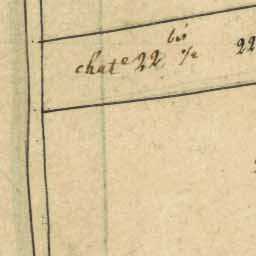 chat^e 22 bis 1/2 22